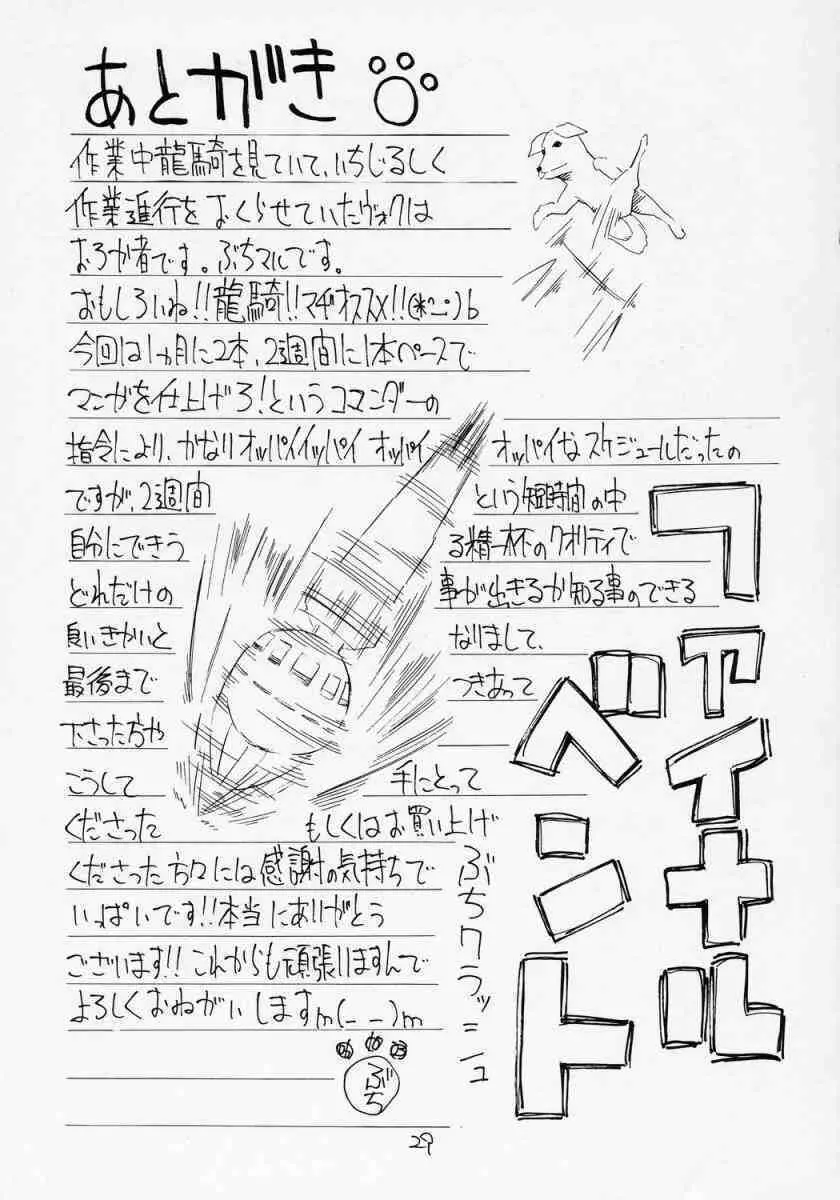 あとがき
作業中龍騎を見ていて、いちじるしく
作業進行をおくらせていたヴォクは
おろか者です。ぶちマルです。
おもしろいね!!龍騎!!マヂオススメ!!(*^-^)b
今回は1ヵ月に2本、2週間に1本ペースで
マンガを仕上げろ!というコマンダーの
指令により、かなりオッパイイッパイ オッパイ オッパイなスケジュールだったの
ですが、2週間 という短時間の中
自分にできう る精一杯のクオリティで
どれだけの 事が出きるか知る事のできる
良いきかいと なりまして、
最後まで つきあって
下さった方や
こうして 手にとって
くださった もしくはお買い上げ
くださった方々には感謝の気持ちで
いっぱいです!!本当にありがとう
ございます!!これからも頑張りますんで
よろしくおねがいしますm(_ _)m
ぶち
ぶちクラッシュ
ファイナル
ベント
29